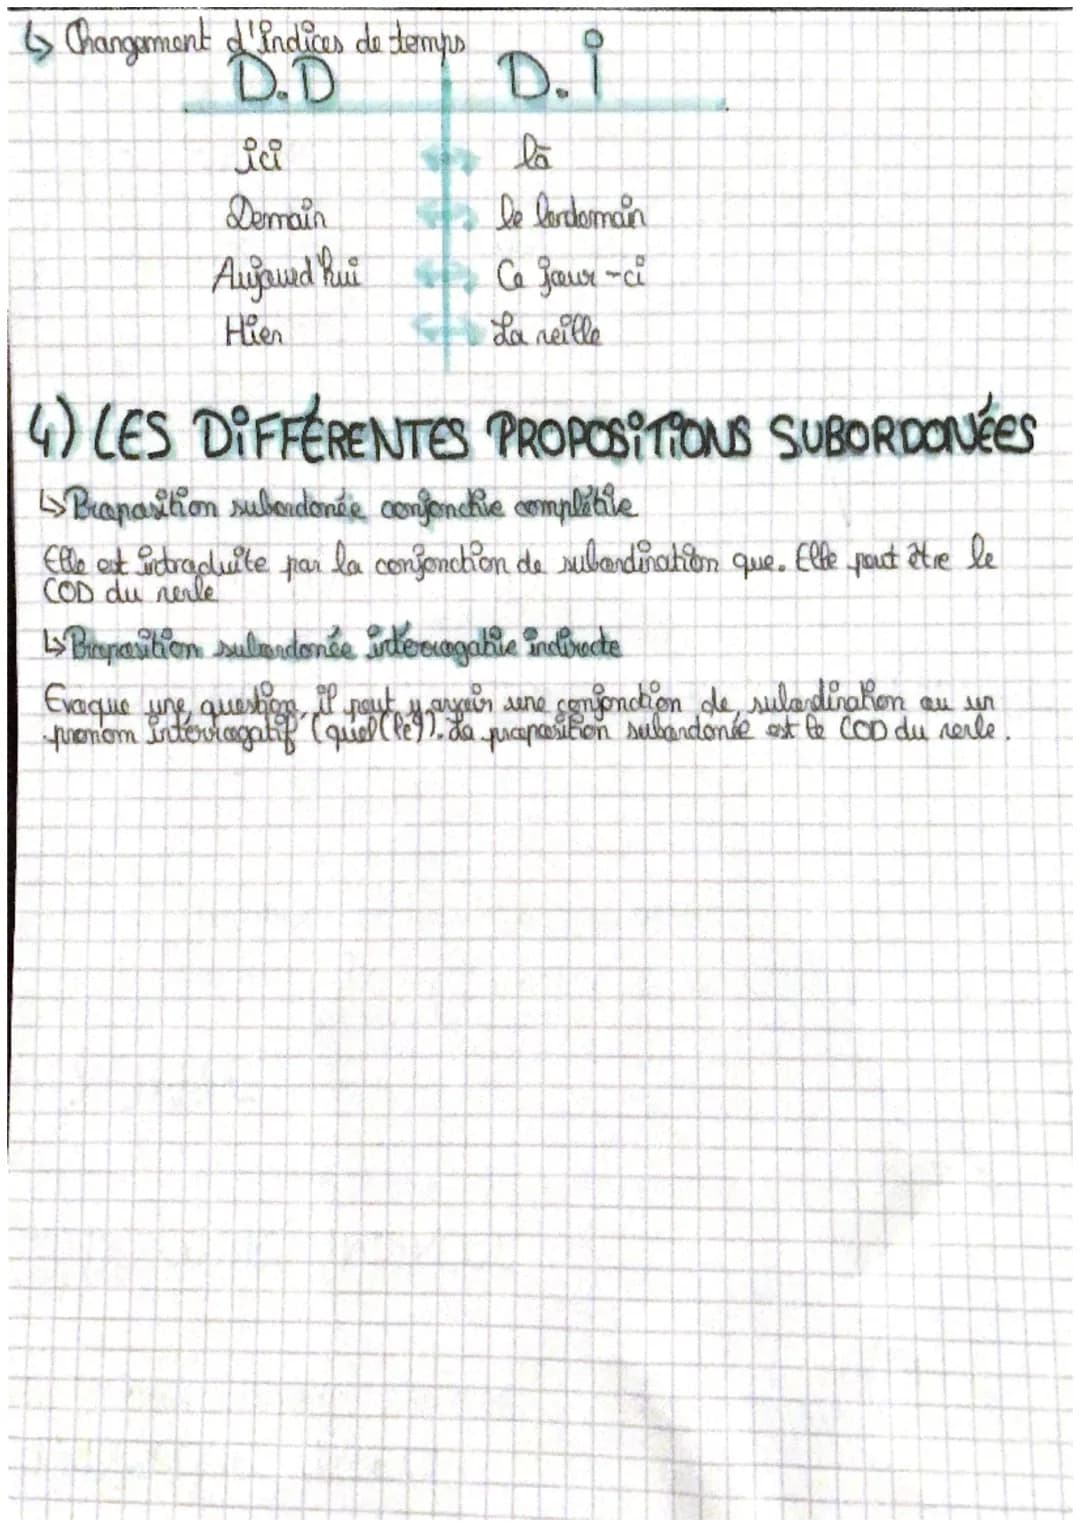 ↳ Changement d'indices de temps
D.D D.I
ici là
Demain le lendemain
Aujourd'hui Ce jour-ci
Hier La veille
4) LES DIFFÉRENTES PROPOSITIONS SUBORDONÉES
↳ Proposition subordonée conjonctive complétive
Elle est introduite par la conjonction de subordination que. Elle peut être le
COD du verbe
↳ Proposition subordonée intérrogative indirecte
Evoque une question, il peut y avoir une conjonction de subordination ou un
pronom intérrogatif (quel(le)). La proposition subordonée est le COD du verbe.